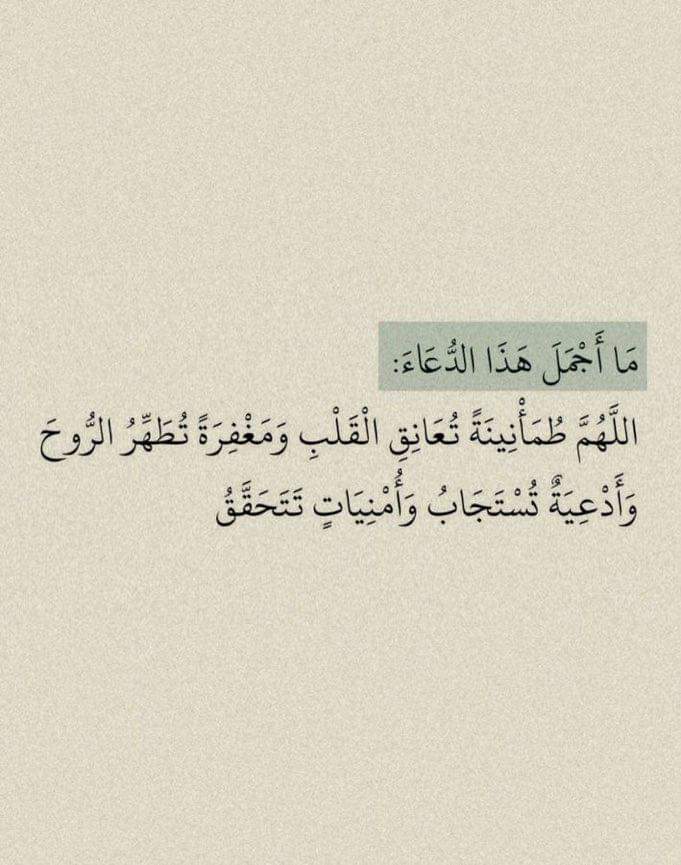 مَا أَجْمَلَ هَذَا الدُّعَاءَ:
اللَّهُمَّ طُمَأْنِينَةً تُعَانِقِ الْقَلْبِ وَمَغْفِرَةً تُطَهِّرُ الرُّوحَ
وَأَدْعِيَةٌ تُسْتَجَابُ وَأُمْنِيَاتٍ تَتَحَقَّقُ